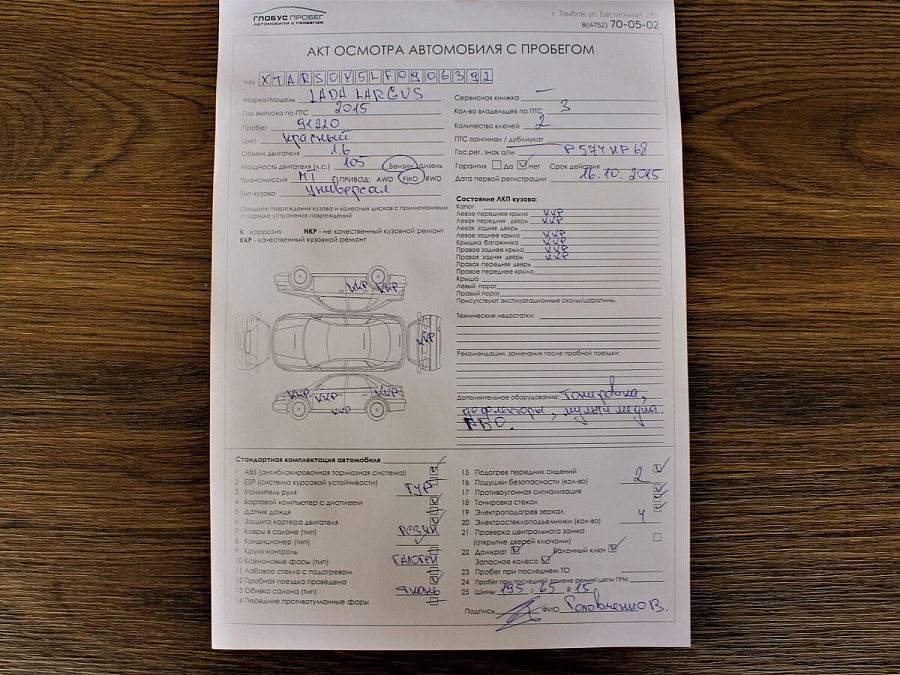 ГЛОБУС ПРОБЕГ
АВТОМОБИЛИ С ПРОБЕГОМ
г. Тамбов, ул. Бастионная,
8(4752) 70-05-02
АКТ ОСМОТРА АВТОМОБИЛЯ С ПРОБЕГОМ
VIN XTARS0Y5LF0906392
Марка/Модель LADA LARGUS
Год выпуска по ПТС 2015
Пробег 91220
Цвет Красный
Объем двигателя 1.6
Мощность двигателя (л.с.) 105 Бензин Дизель
Трансмиссия МТ ПРИВОД: AWD FWD RWD
Тип кузова Универсал
Сервисная книжка —
Кол-во владельцев по ПТС 3
Количество ключей 2
ПТС оригинал / дубликат
Гос.рег. знак а/м Р574НР68
Гарантия Да Нет Срок действия
Дата первой регистрации 16.10.2015
Опишите повреждения кузова и колесных дисков с примечаниями
о порядке устранения повреждений
К - коррозия НКР - не качественный кузовной ремонт
ККР - качественный кузовной ремонт
ККР ККР
ККР
ККР ККР ККР
ККР
Состояние ЛКП кузова:
Капот
Левое переднее крыло ККР
Левая передняя дверь ККР
Левая задняя дверь
Левое заднее крыло ККР
Крышка багажника ККР
Правое заднее крыло ККР
Правая задняя дверь ККР
Правая передняя дверь
Правое переднее крыло
Крыша
Левый порог
Правый порог
Присутствуют эксплуатационные сколы/царапины.
Технические недостатки:
Рекомендации, замечания после пробной поездки:
Дополнительное оборудование: Тонировка,
дефлекторы, мультимедиа
Стандартная комплектация автомобиля
1 ABS (антиблокировочная тормозная система)
2 ESP (система курсовой устойчивости)
3 Усилитель руля ГУР
4 Бортовой компьютер с дисплеем
5 Датчик дождя
6 Защита картера двигателя
7 Ковры в салоне (тип) Резин
8 Кондиционер (тип)
9 Круиз-контроль
10 Ксеноновые фары (тип) Галоген
11 Лобовое стекло с подогревом
12 Пробная поездка проведена
13 Обивка салона (тип) Ткань
14 Передние противотуманные фары
15 Подогрев передних сидений
16 Подушки безопасности (кол-во) 2
17 Противоугонная сигнализация
18 Тонировка стекол
19 Электроподогрев зеркал
20 Электростеклоподъемники (кол-во) 4
21 Проверка центрального замка
(открытие дверей ключами)
22 Домкрат Баллонный ключ
Запасное колесо
23 Пробег при последнем ТО
24 Пробег при последней замене ремня/цепи ГРМ
25 Шины 195 / 65 R 15
Подпись ФИО